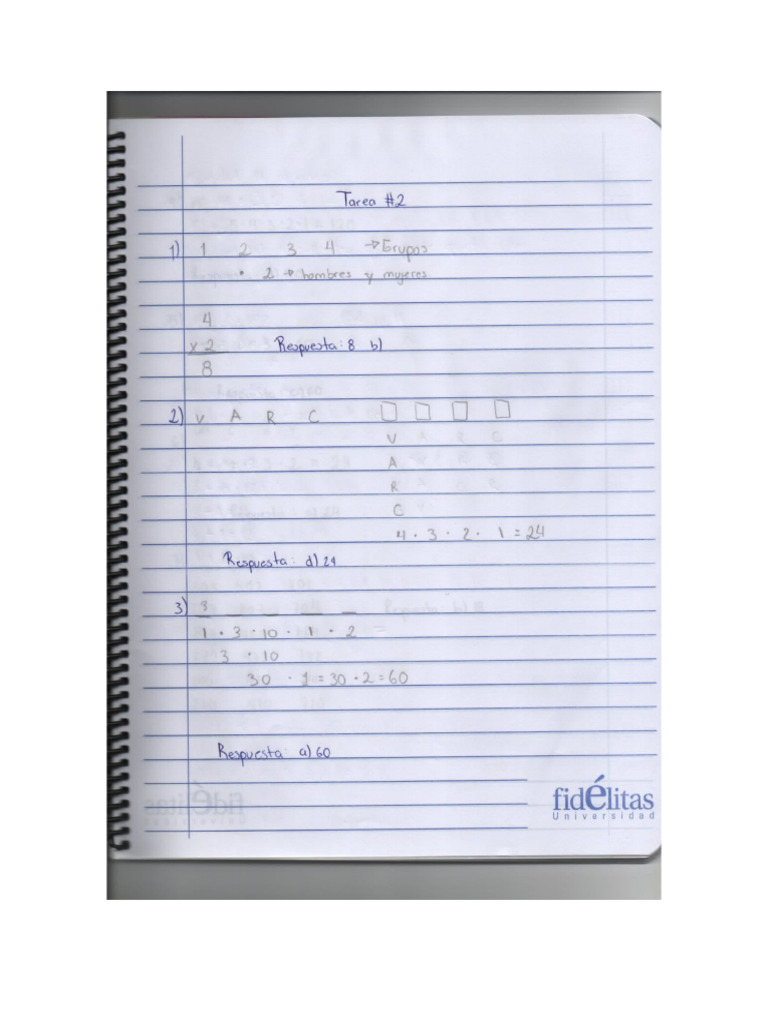 Tarea #2
1) 1 2 3 4 → Grupos
• 2 → hombres y mujeres
4
x 2 Respuesta: 8 b)
8
2) V A R C
V A R C
A
R
C
4 · 3 · 2 · 1 = 24
Respuesta: d) 24
3) 3
1 · 3 · 10 · 1 · 2 =
3 · 10
30 · 1 = 30 · 2 = 60
Respuesta: a) 60
fidélitas
Universidad